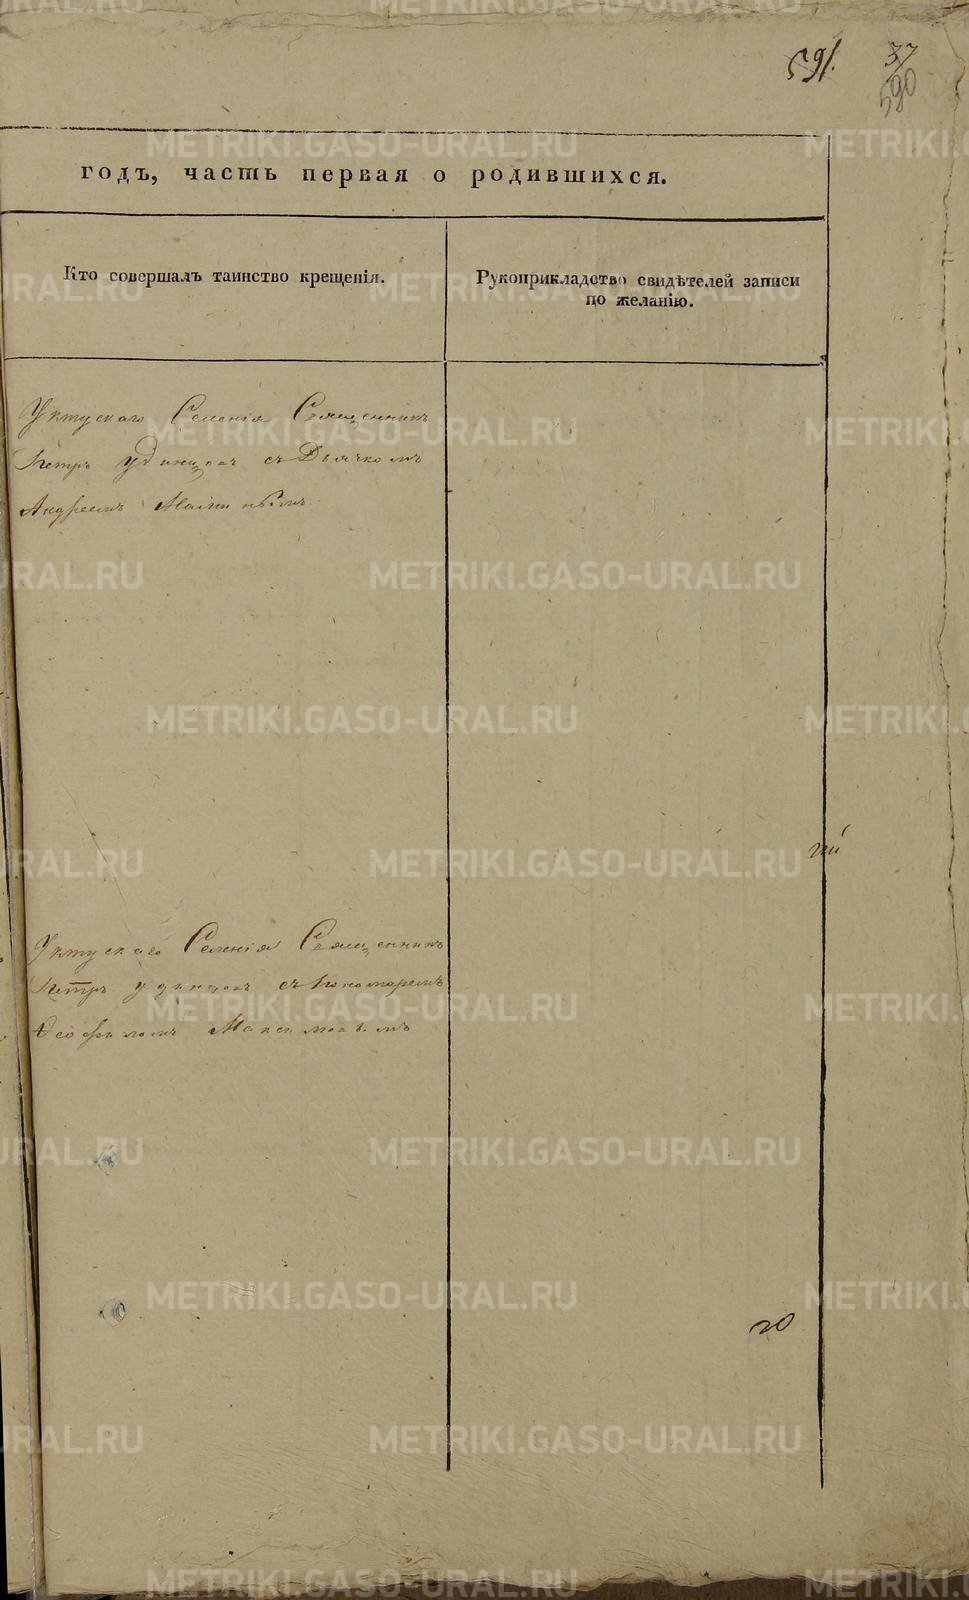 591. 37
590
годъ, часть первая о родившихся.
Кто совершалъ таинство крещенія.
Рукоприкладство свидѣтелей записи
по желанію.
Уктускаго Селенія Священникъ
Петръ Удинцовъ съ Дьячкомъ
Андреемъ
Уктускаго Селенія Священникъ
Петръ Удинцовъ съ Пономаремъ
Ѳеофиломъ Максимовымъ
METRIKI.GASO-URAL.RU